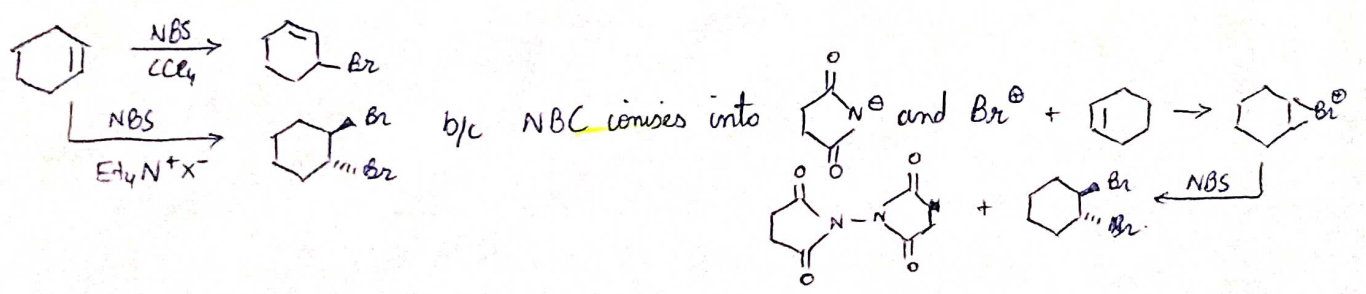 NBS
CCl4
Br
NBS
Et4N+X-
Br
Br
b/c NBC ionises into
O
N⊖
O
and Br⊕ +
→
Br⊕
NBS
O
O
N-N
O
O
+
Br
Br.